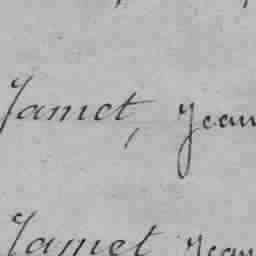 Jamet, Jean
Jamet Jean